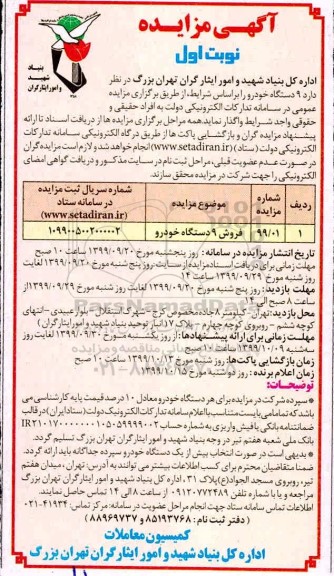 آگهی مزایده
نوبت اول
بنیاد
شهید
و امور ایثارگران
اداره کل بنیاد شهید و امور ایثارگران تهران بزرگ در نظر
دارد ۹ دستگاه خودرو را براساس شرایط، از طریق برگزاری مزایده
عمومی در سامانه تدارکات الکترونیکی دولت به افراد حقیقی و
حقوقی واجد شرایط واگذار نماید. همه مراحل برگزاری مزایده ها از دریافت اسناد تا ارائه
پیشنهاد مزایده گران و بازگشایی پاکت ها از طریق درگاه الکترونیکی سامانه تدارکات
الکترونیکی دولت (ستاد) (www.setadiran.ir) انجام خواهد شد و لازم است مزایده گران
در صورت عدم عضویت قبلی، مراحل ثبت نام در سایت مذکور و دریافت گواهی امضای
الکترونیکی را جهت شرکت در مزایده محقق سازند.
ردیف
شماره مزایده
موضوع مزایده
شماره سریال ثبت مزایده
در سامانه ستاد
(www.setadiran.ir)
۱
۹۹/۰۱
فروش ۹ دستگاه خودرو
۱۰۹۹۰۰۵۰۰۲۰۰۰۰۰۲
تاریخ انتشار مزایده در سامانه: روز پنجشنبه مورخ ۱۳۹۹/۰۹/۲۰ ساعت ۱۰ صبح
مهلت زمانی برای دریافت اسناد مزایده از سایت: روز پنج شنبه مورخ ۱۳۹۹/۰۹/۲۰ لغایت
روز شنبه مورخ ۱۳۹۹/۰۹/۲۹ ساعت ۱۴
مهلت بازدید: روز پنج شنبه مورخ ۱۳۹۹/۰۹/۲۰ لغایت روز شنبه مورخ ۱۳۹۹/۰۹/۲۹ از
ساعت ۸ صبح الی ۱۴
محل بازدید: تهران - کیلومتر ۸ جاده مخصوص کرج - شهرک استقلال - بلوار عبیدی - انتهای
کوچه ششم - روبروی کوچه چهارم - پلاک ۱۷ (انبار توحید بنیاد شهید و امور ایثارگران)
مهلت زمانی برای ارائه پیشنهادها: از روز یکشنبه مورخ ۱۳۹۹/۰۹/۳۰ لغایت روز
سه شنبه ۱۳۹۹/۱۰/۰۹ ساعت ۱۰ صبح
زمان بازگشایی پاکت ها: روز شنبه مورخ ۱۳۹۹/۱۰/۱۳ ساعت ۱۰ صبح
زمان اعلام برنده: روز دوشنبه مورخ ۱۳۹۹/۱۰/۱۵
توضیحات:
* سپرده شرکت در مزایده برای هر دستگاه خودرو معادل ۱۰ درصد قیمت پایه کارشناسی می
باشد که تمامی بایست متناسب با اعلام سامانه تدارکات الکترونیک دولت (ستاد ایران) در قالب
ضمانتنامه بانکی یا فیش واریزی به شماره حساب
بانک ملی شعبه هفتم تیر در وجه بنیاد شهید و امور ایثارگران تهران بزرگ تسلیم گردد.
* بدیهی است در صورت انتخاب بیش از یک دستگاه خودرو سپرده جداگانه باید ارائه گردد.
ضمنا متقاضیان محترم برای کسب اطلاعات بیشتر می توانند به آدرس: تهران، میدان هفتم
تیر، روبروی مسجد الجواد(ع) پلاک ۳۱، اداره کل بنیاد شهید و امور ایثارگران تهران بزرگ
مراجعه و یا با شماره تلفن ۰۹۱۲۰۷۷۲۴۸۹ از ساعت ۸ الی ۱۴ تماس حاصل نمایند.
اطلاعات تماس سامانه ستاد جهت انجام مراحل عضویت در سامانه: مرکز تماس: ۴۱۹۳۴-۰۲۱
(دفتر ثبت نام: ۸۵۱۹۳۷۶۸ و ۸۸۹۶۹۷۳۷)
کمیسیون معاملات
اداره کل بنیاد شهید و امور ایثارگران تهران بزرگ